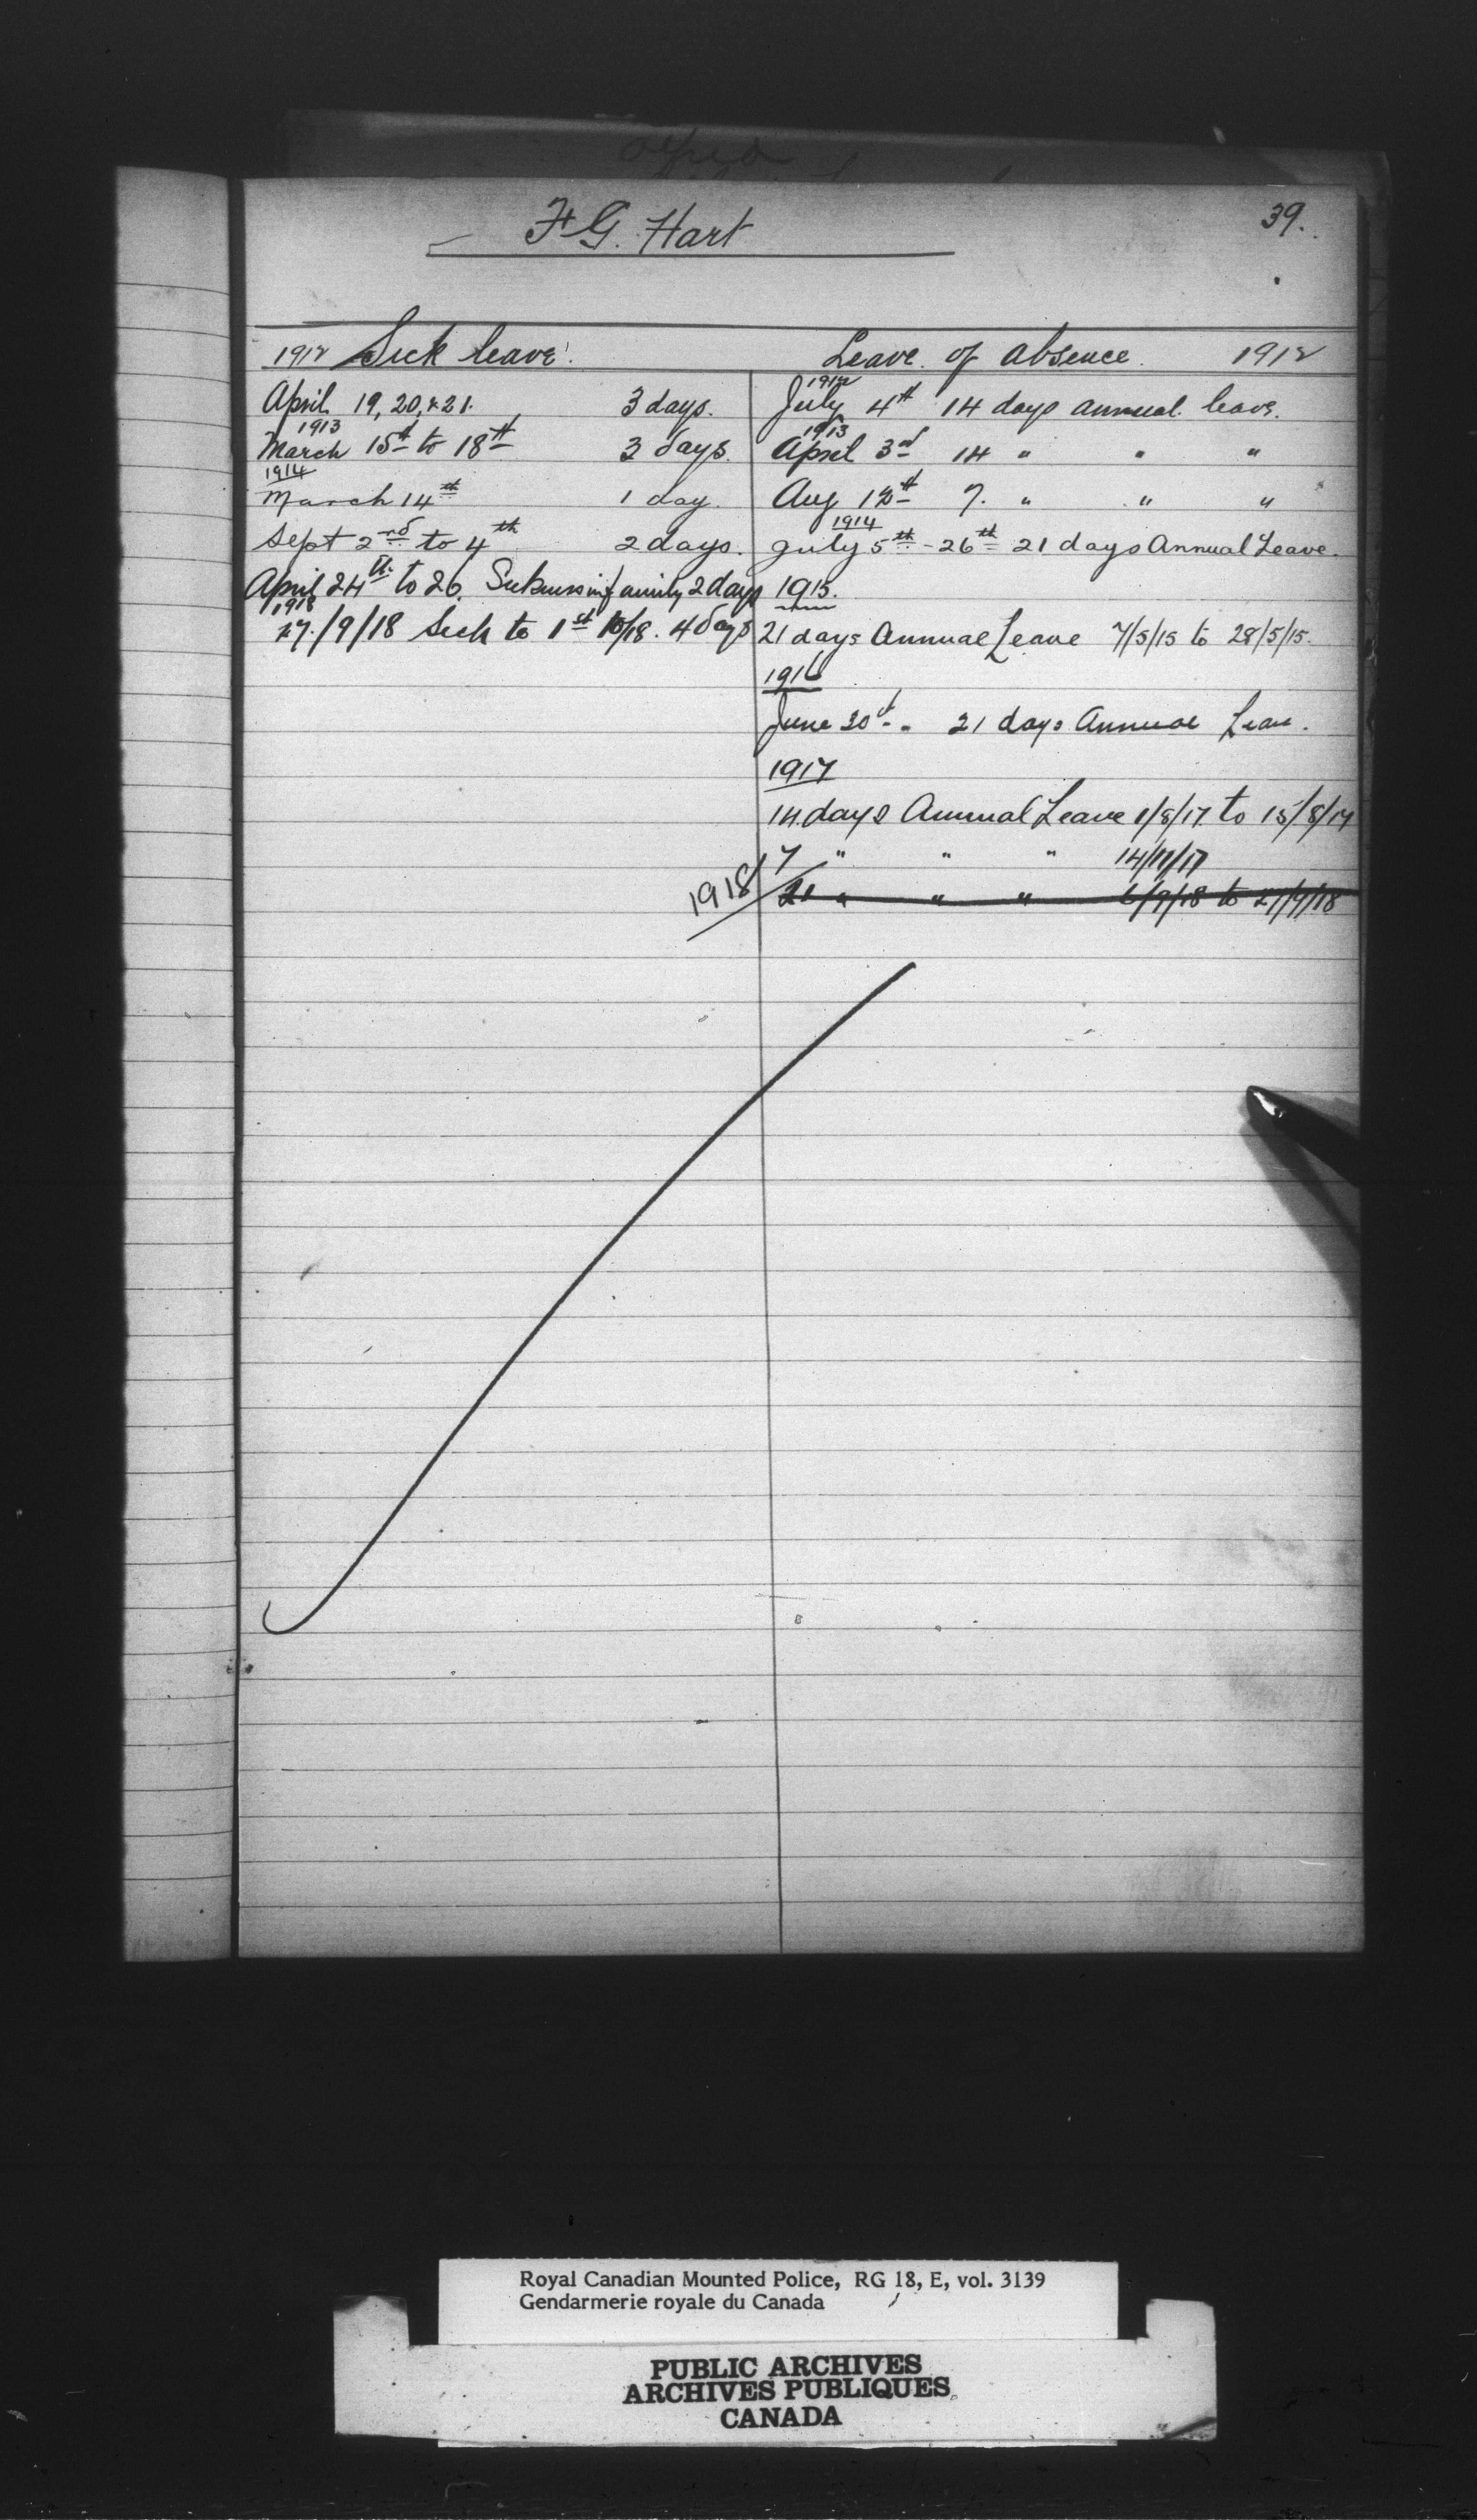 39.
F G. Hart
1912 Sick leave.
April 19, 20, & 21. 3 days.
1913
March 15th to 18th 3 days.
1914
March 14th 1 day.
Sept 2nd to 4th 2 days.
April 24th to 26. Sickness in family 2 days
1918
27./9/18 Sick to 1st 10/18. 4 days
Leave of absence. 1912
1912
July 4th 14 days annual leave.
1913
April 3rd 14 " " "
Aug 12th 7. " " "
1914
July 5th - 26th 21 days Annual Leave.
1915.
21 days Annual Leave 7/5/15 to 28/5/15.
1916
June 20th - 21 days Annual Leave.
1917
14 days Annual Leave 1/8/17 to 15/8/17
7 " " " 14/11/17
1918 21 " " " 6/9/18 to 27/9/18
Royal Canadian Mounted Police, RG 18, E, vol. 3139
Gendarmerie royale du Canada
PUBLIC ARCHIVES
ARCHIVES PUBLIQUES
CANADA